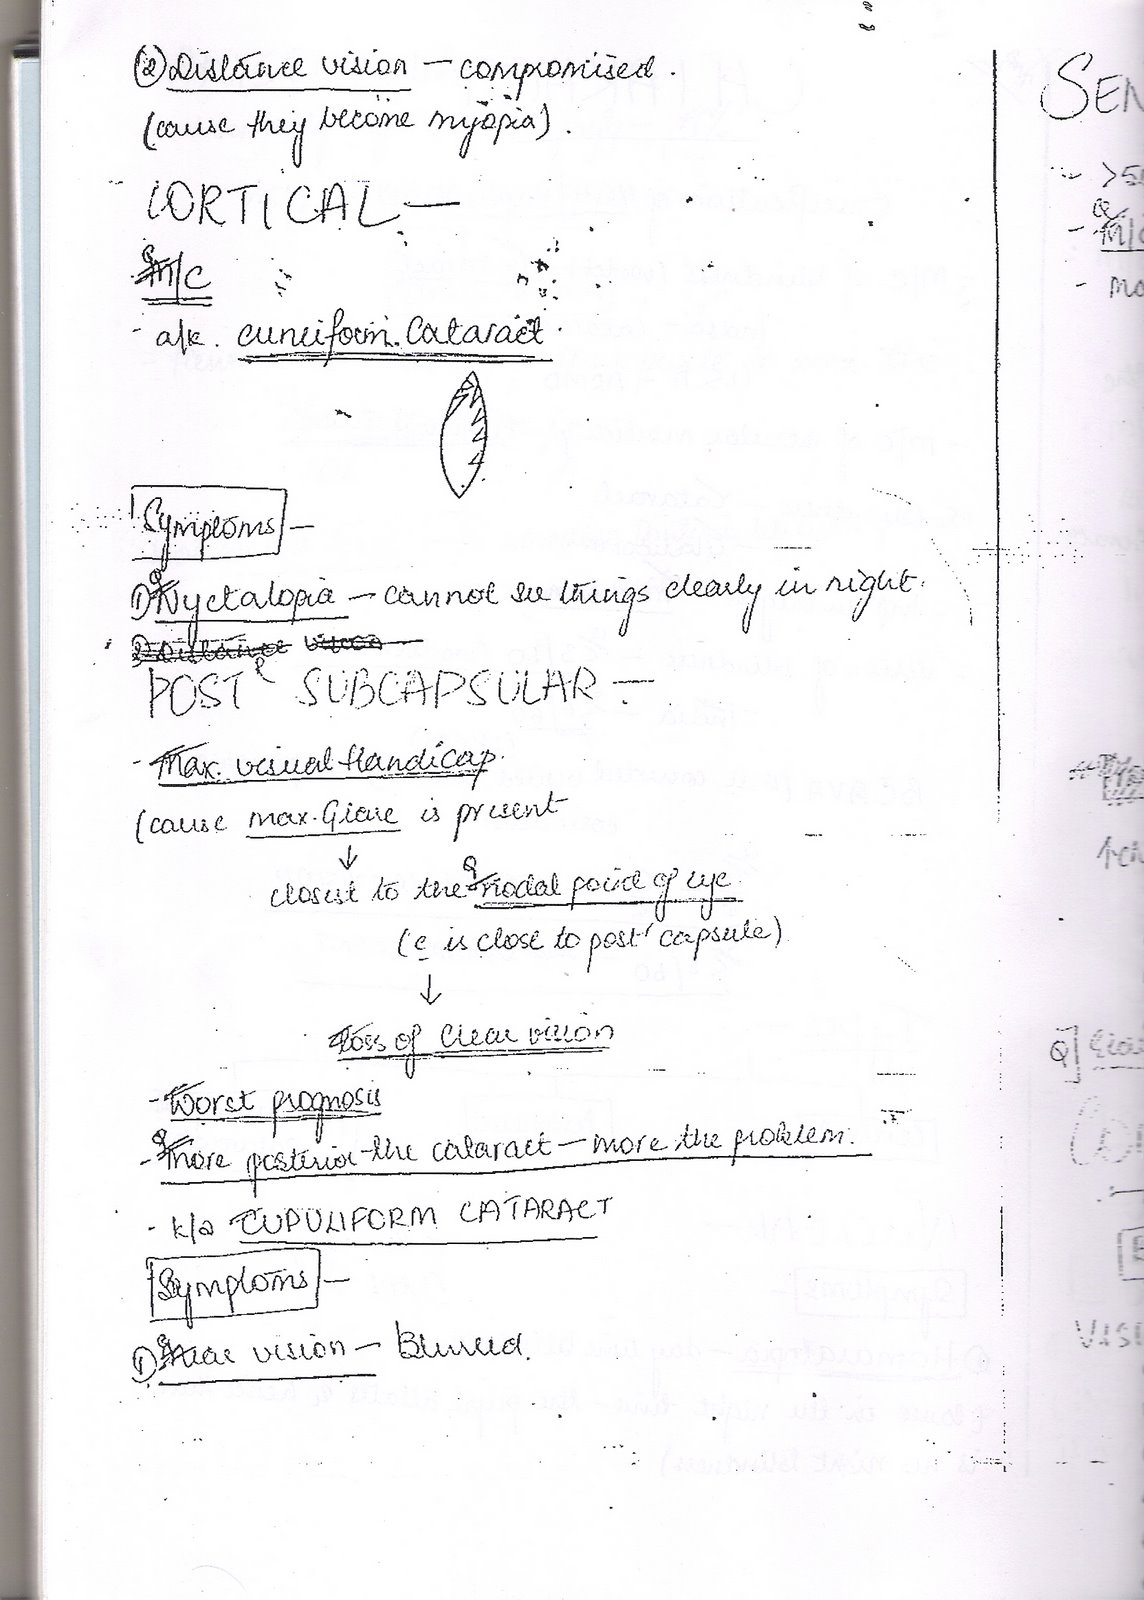 ② Distance vision — compromised.
(cause they become myopia).
CORTICAL —
Q M/C
- a/k. cuneiform. Cataract.
Symptoms —
① Q Nyctalopia — cannot see things clearly in night.
2) Distance vision —
POSTr SUBCAPSULAR —
- Max. visual Handicap.
(cause max. Glare is present
↓
closest to the Q nodal point of eye.
(c is close to postr capsule)
↓
Loss of clear vision
- Worst prognosis
- Q More posterior the cataract — more the problem.
- k/a CUPULIFORM CATARACT
Symptoms —
① Q Near vision — Blurred.
SEN
- >5
Q
- M/C
- mo
Q]
VIS